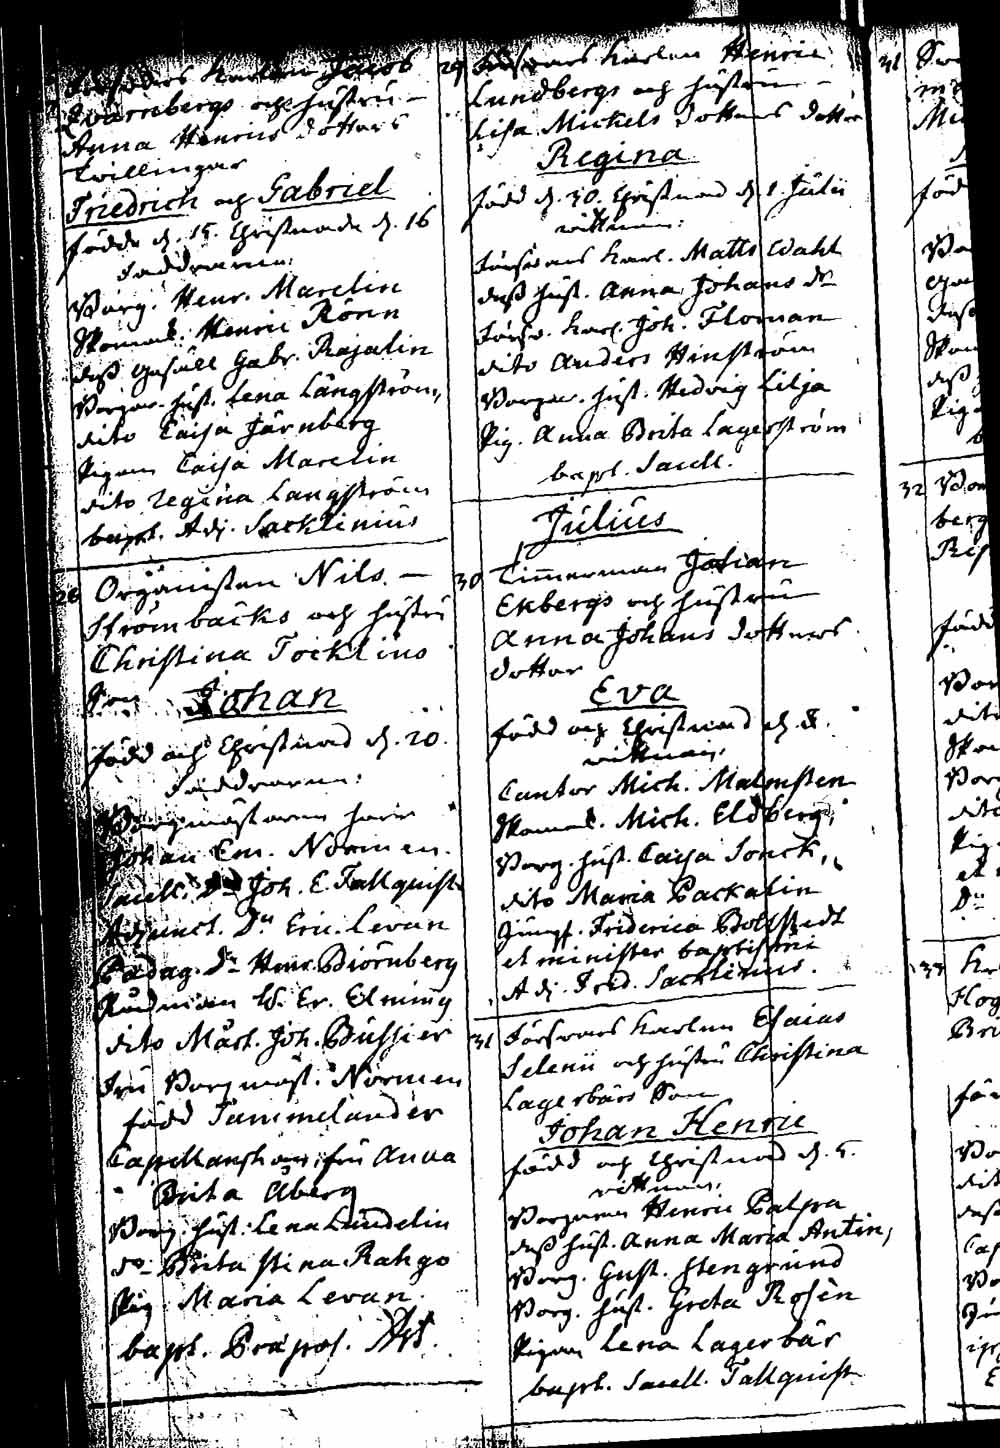 Försvars Karlen Jacob
Qvarnbergs och hustru
Anna Henrics dotters
tvillingar
Friedrich och Gabriel
född d. 15. Christnade d. 16
Faddrarne:
Borg. Henr. Marelin
Skomak. Henric Rönn
dess gesäll Gabr. Rajalin
Borgar. hust. Lena Långström,
dito Caisa Järnberg
Pigan Caisa Marelin
dito Regina Langström
bapt. Adj. Sacklinius
28 Organisten Nils
Strömbäcks och hustru
Christina Tocklins
Son Johan
född och Christnad d. 20.
Faddrarne:
Borgmästaren herr
Johan Em. Normen.
Sacell. Dn Joh. E. Fallquist
Adjunct. Dn Eric. Levan
Pædag. Dn Henr. Biörnberg
Rådman W. Er. Elming
dito Mårt. Joh. Bussier
Fru Borgmäst. Normen
född Tammelander
Capellanskan, fru Anna
Brita Åberg
Borg. hust. Lena Lundelin
do Brita Stina Rahgo
Pig. Maria Levan.
bapt. Præpos.
29 Försvars Karlen Henric
Lundbergs och hustru
Lisa Mickels dotters dotter
Regina
född d. 30. Christnad d. 1. Julii
vittnen:
Försvars Karl. Matts Wahl
dess hust. Anna Johans dr
Försv. Karl. Joh. Floman
dito Anders Hinström
Borgar. hust. Hedvig Lilja
Pig. Anna Brita Lagerström
bapt. Sacell.
Julius
30 Timmerman Johan
Ekbergs och hustru
Anna Johans dotters
dotter
Eva
född och Christnad d. 8.
vittnen:
Cantor Mich. Malmsten
Skomak. Mich. Eldberg,
Borg. hust. Caisa Sonck,
dito Maria Packalin
Jungf. Friderica Bollstedt
et minister baptismi
Adj. Fred. Sacklinius.
31 Försvars Karlen Esaias
Selenii och hustru Christina
Lagerbärs Son
Johan Henric
född och Christnad d. 5.
vittnen:
Borgaren Henric Palpra
dess hust. Anna Maria Antin,
Borg. Gust. Stengrund
Borg. hust. Greta Rosèn
Pigan Lena Lagerbär
bapt. Sacell. Fallquist
31
32
berg
född
33